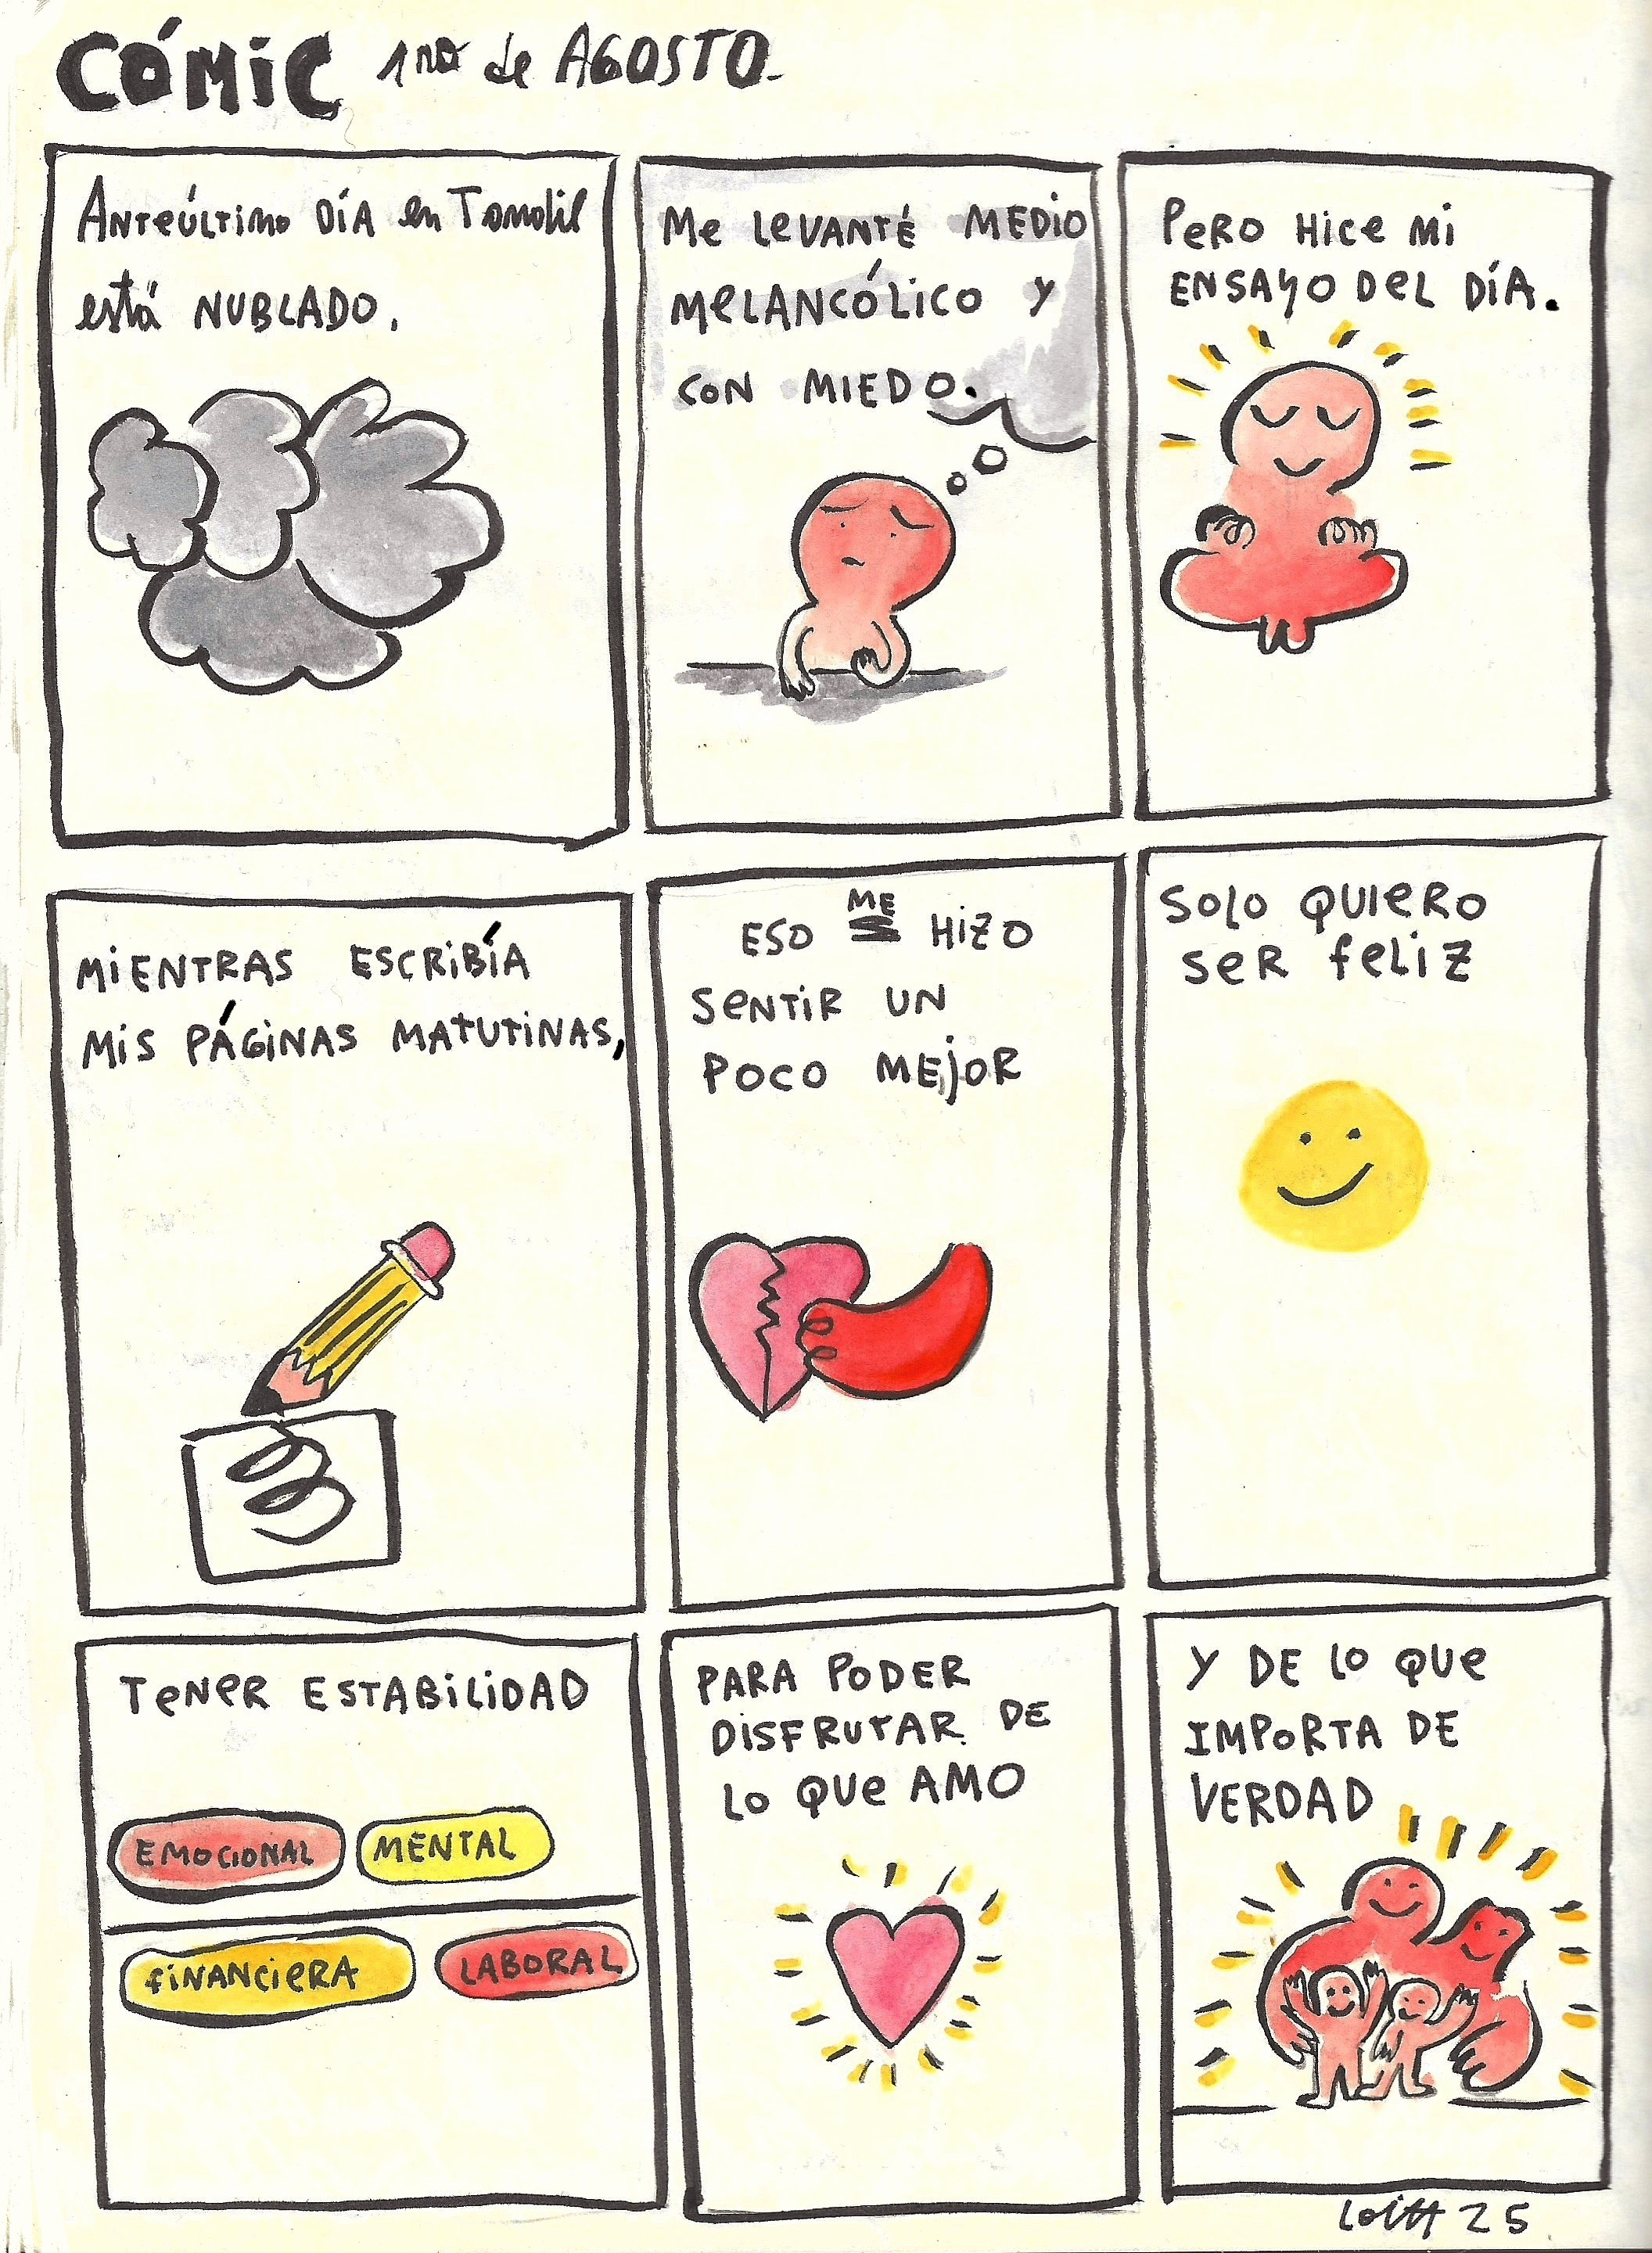 CÓMIC 1ro de AGOSTO.
ANTEÚLTIMO DÍA en Tandil
está NUBLADO.
Me LEVANTÉ MEDIO
MELANCÓLICO Y
CON MIEDO.
PERO HICE MI
ENSAYO DEL DÍA.
MIENTRAS ESCRIBÍA
MIS PÁGINAS MATUTINAS,
ESO ME HIZO
SENTIR UN
POCO MEJOR
SOLO QUIERO
SER FELIZ
TENER ESTABILIDAD
EMOCIONAL MENTAL
FINANCIERA LABORAL
PARA PODER
DISFRUTAR DE
LO QUE AMO
Y DE LO QUE
IMPORTA DE
VERDAD
25